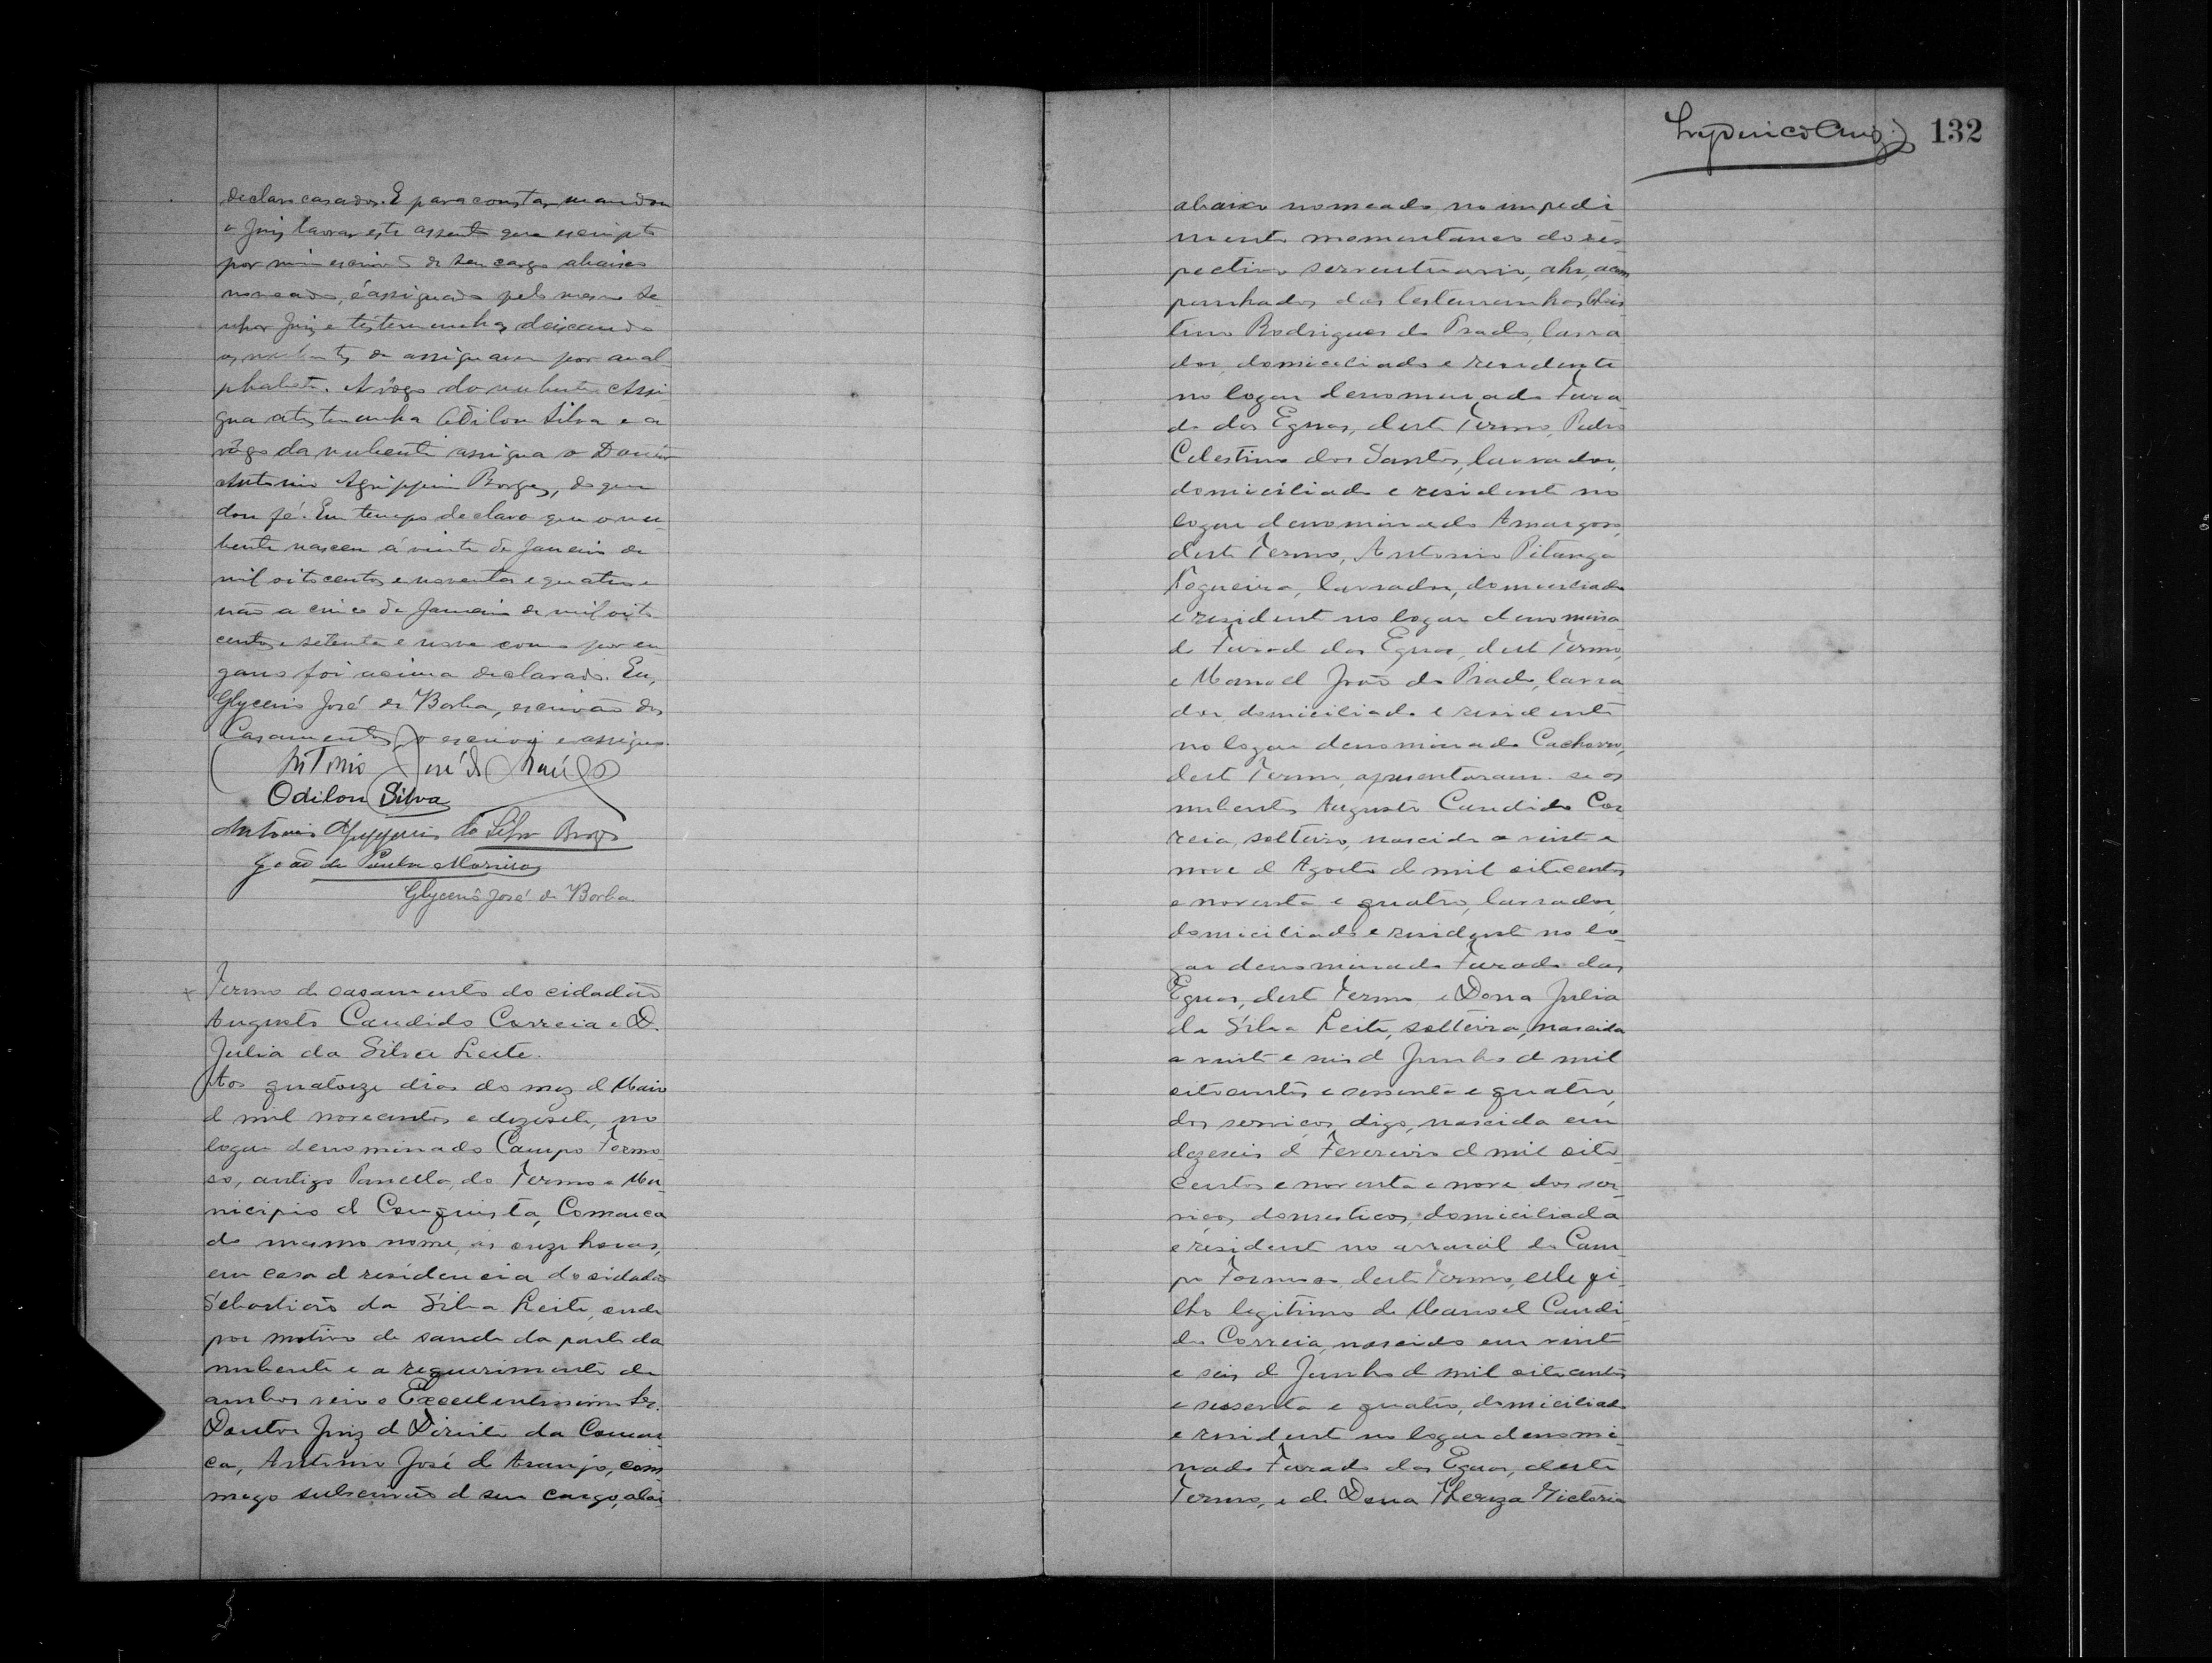 declaro casados. E para constar, mandou
o Juiz lavrar este assento que escripto
por mim escrivão de seu cargo abaixo
nomeado, é assignado pelo mesmo Se
nhor Juiz e testemunhas, deixando
os nubentes de assignarem por anal
phabetos. A rôgo do nubente Assi
gna a testemunha Odilon Silva e a
rôgo da nubente assigna o Doutor
Antonio Agrippino Borges, do que
dou fé. Em tempo declaro que o nu-
bente nasceu á vinte de Janeiro de
mil oitocentos e noventa e quatro e
não a cinco de Janeiro de mil oito
centos e setenta e nove como por en
gano foi acima declarado. Eu,
Glycerio José de Borba, escrivão dos
Casamentos, o escrevi e assigno.
Antonio José de Araújo
Odilon Silva
Antonio Agrippino da Silva Borges
João de Paula Moreira
Glycerio José de Borba
+ Termo de casamento do cidadão
Augusto Candido Correia e D.
Julia da Silva Leite.
Aos quatorze dias do mez d Maio
d mil novecentos e dezesete, no
logar denominado Campo Formo-
so, antigo Panella, do Termo e Mu-
nicipio d Conquista, Comarca
do mesmo nome, ás onze horas,
em casa d residencia do cidadão
Sebastião da Silva Leite, onde
por motivo de saude da parte da
nubente e a requerimento de
ambos veio o Excellentissimo Sr.
Doutor Juiz d Direito da Comar-
ca, Antonio José d Araujo, com
migo subscrivão d seu cargo, abai
Lyderico Cruz 132
abaixo nomeado no impedi-
mento momentaneo do res-
pectivo serventuario, ahi, acom
panhados das testemunhas
Rodrigues do Prado, lavra
dor, domiciliado e residente
no logar denominado Fura-
do das Eguas, deste Termo, Pedro
Celestino dos Santos, lavrador,
domiciliado e residente no
logar denominado Amargoso,
deste Termo, Antonio Pitanga
Nogueira, lavrador, domiciliado
e resident no logar denomina-
do Furado das Eguas, dest Termo,
e Manoel João do Prado, lavra-
dor, domiciliado e residente
no logar denominado Cachorro,
dest Termo, apresentaram-se os
nubentes Augusto Candido Cor
reia, solteiro, nascido a vinte e
nove d Agosto de mil oitocentos
e noventa e quatro, lavrador,
domiciliado e resident no lo-
gar denominado Furado das
Eguas, dest Termo e Dona Julia
da Silva Leite, solteira, nascida
a vinte e seis d Junho d mil
oitocentos e sessenta e quatro,
dos serviços, digo, nascida em
dezeseis d Fevereiro d mil oito-
centos e noventa e nove, dos ser-
viços domesticos, domiciliada
e resident no arraial de Cam-
po Formoso deste Termo, elle fi-
lho legitimo de Manoel Candi-
do Correia, nascido em vinte
e seis d Junho d mil oitocentos
e sessenta e quatro, domiciliado
e resident no logar denomi-
nado Furado das Eguas, deste
Termo, e de Dona Thereza Victoria